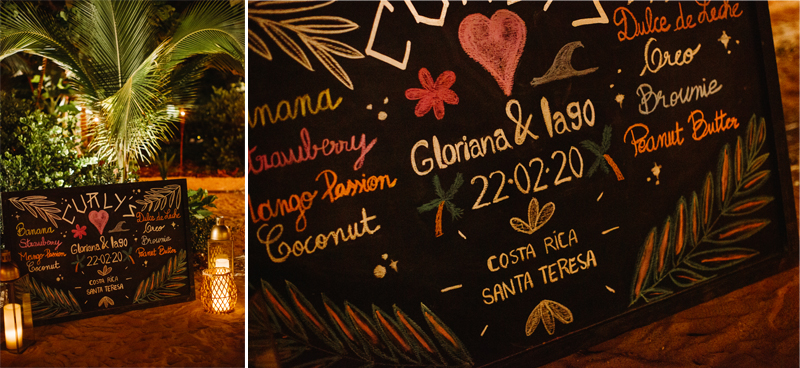 CURLY'S
Banana
Strawberry
Mango Passion
Coconut
Gloriana & Iago
22·02·20
COSTA RICA
SANTA TERESA
Dulce de Leche
Oreo
Brownie
Peanut Butter
CURLY'S
Banana
Strawberry
Mango Passion
Coconut
Gloriana & Iago
22·02·20
COSTA RÍCA
SANTA TERESA
Dulce de Leche
Oreo
Brownie
Peanut Butter